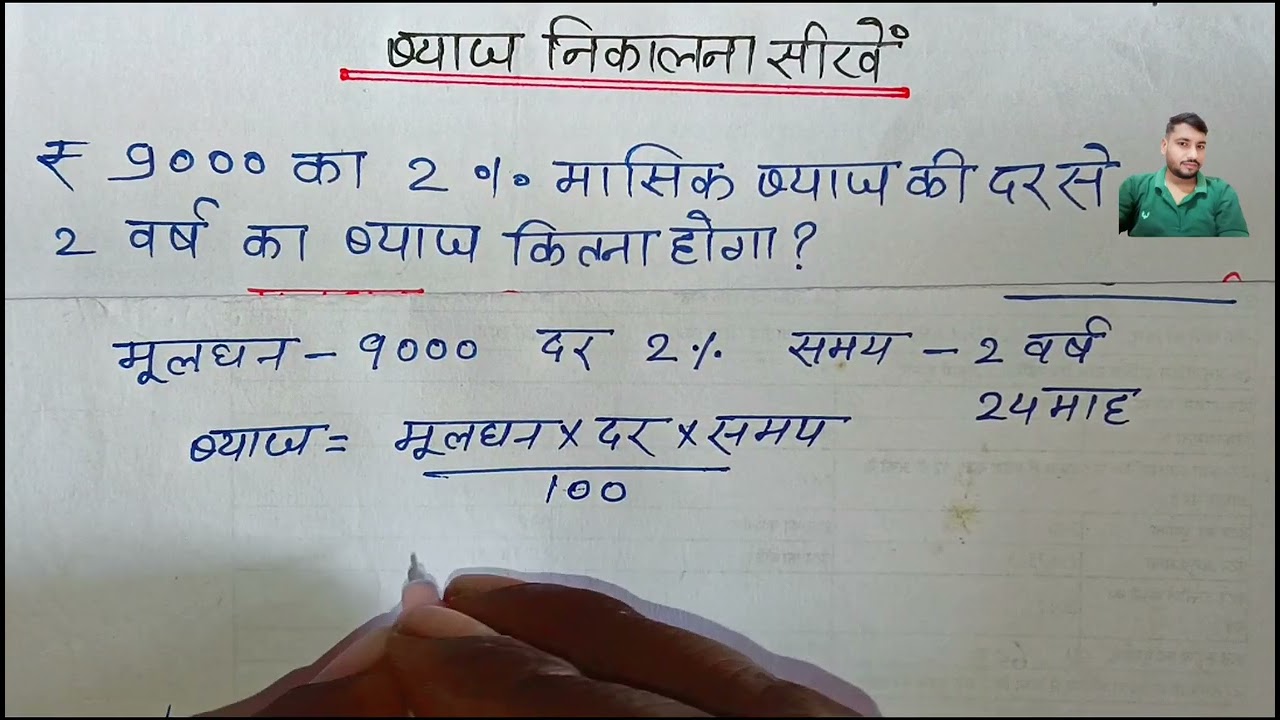 ब्याज निकालना सीखें
₹ 9000 का 2 % मासिक ब्याज की दर से
2 वर्ष का ब्याज कितना होगा?
मूलधन - 9000 दर 2% समय - 2 वर्ष
24 माह
ब्याज = मूलधन × दर × समय
100